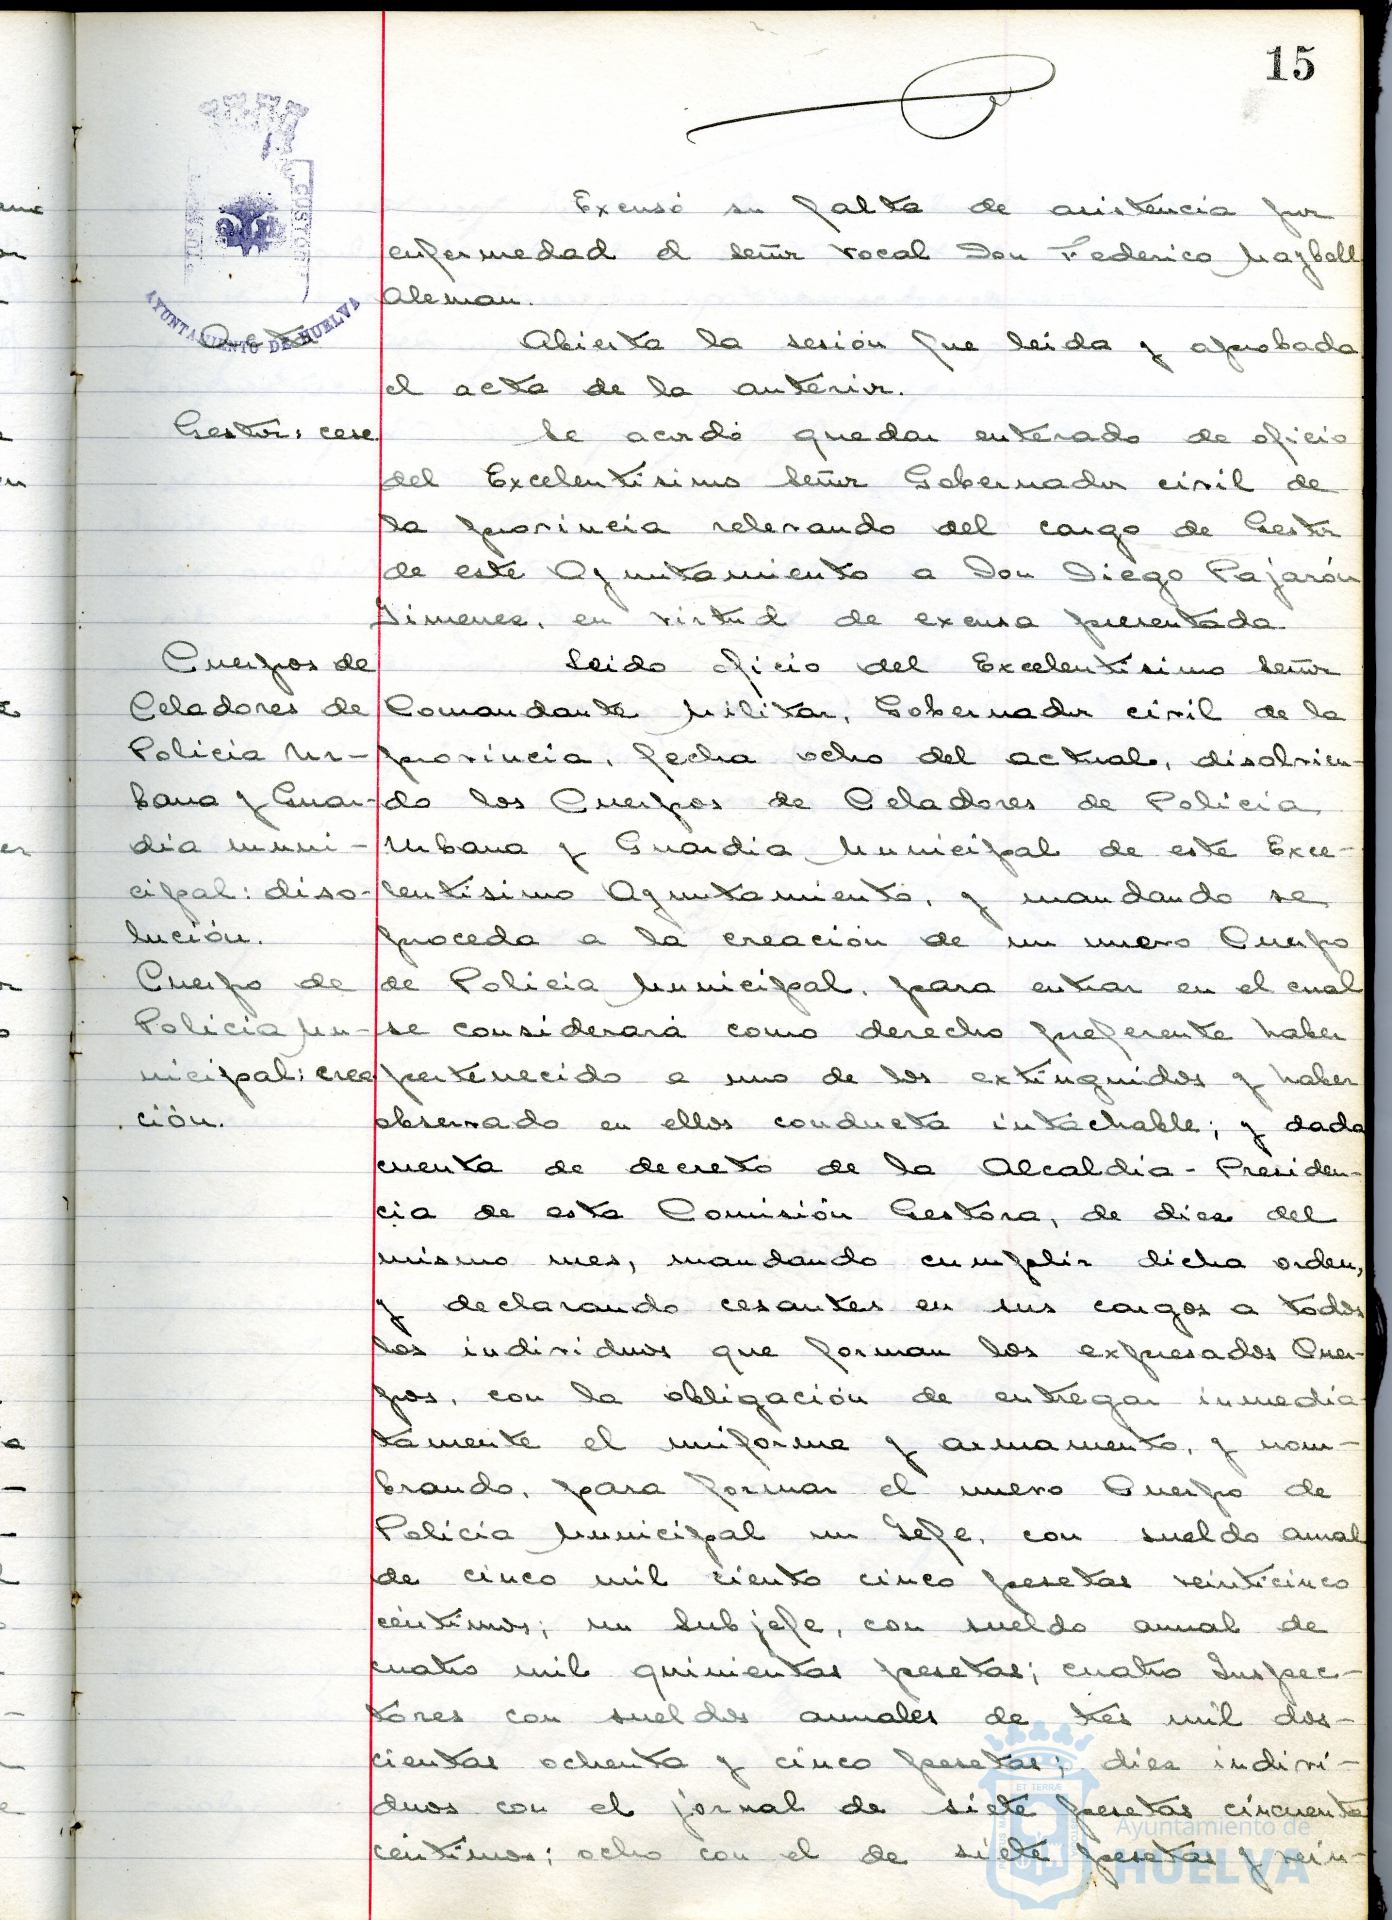 15
Excusó su falta de asistencia por
enfermedad el señor vocal Don Federico Mayboll
Aleman.
AYUNTAMIENTO DE HUELVA
Acta
Abierta la sesión fue leida y aprobada
el acta de la anterior.
Gestor: cese.
Se acordó quedar enterado de oficio
del Excelentisimo Señor Gobernador civil de
la provincia relevando del cargo de Gestor
de este Ayuntamiento a Don Diego Pajarón
Gimenez, en virtud de excusa presentada
Cuerpos de
Celadores de
Policia Ur-
bana y Guar-
dia muni-
cipal: diso-
lución.
Cuerpo de
Policia Mu-
nicipal: crea
ción.
Leido oficio del Excelentisimo Señor
Comandante Militar, Gobernador civil de la
provincia, fecha ocho del actual, disolvien-
do los Cuerpos de Celadores de Policia
Urbana y Guardia Municipal de este Exce-
lentisimo Ayuntamiento, y mandando se
proceda a la creación de un nuevo Cuerpo
de Policia Municipal, para entrar en el cual
se considerará como derecho preferente haber
pertenecido a uno de los extinguidos y haber
observado en ellos conducta intachable; y dada
cuenta de decreto de la Alcaldia-Presiden-
cia de esta Comisión Gestora, de diez del
mismo mes, mandando cumplir dicha orden,
y declarando cesantes en sus cargos a todos
los individuos que forman los expresados Cuer-
pos, con la obligación de entregar inmedia
tamente el uniforme y armamento, y nom-
brando, para formar el nuevo Cuerpo de
Policia Municipal un Jefe, con sueldo anual
de cinco mil ciento cinco pesetas veinticinco
céntimos; un Subjefe, con sueldo anual de
cuatro mil quinientas pesetas; cuatro Inspec-
tores con sueldos anuales de tres mil dos-
cientas ochenta y cinco pesetas; diez indivi-
duos con el jornal de siete pesetas cincuenta
céntimos; ocho con el de siete pesetas y vein-
ET TERRÆ
Ayuntamiento de
HUELVA